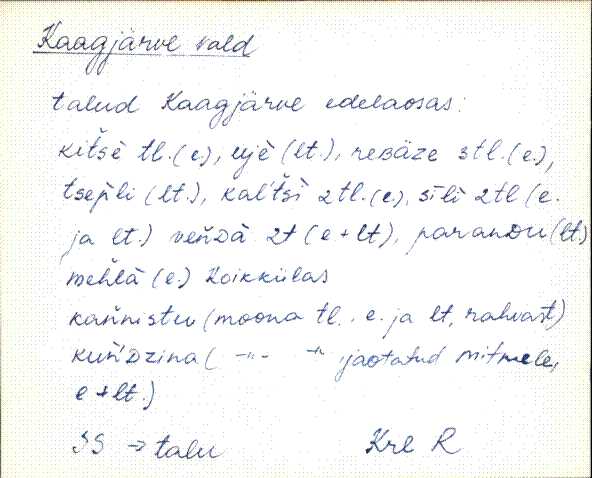 Kaagjärve vald
talud Kaagjärve edelaosas:
kitšè tl.(e.), ujè (lt.), reʙäze 3tl.(e.),
tsep̆li (lt.), kal'tši 2tl.(e.), sīli 2tl (e.
ja lt.) veňdä 2t (e+lt), paranᴅu (lt.)
mehlä (e.) Koikkülas
kaňnistu (moona tl., e. ja lt, rahvast)
kuňᴅzina ( -"- -"- , jaotatud mitmele,
e+lt.)
SS → talu Krl R